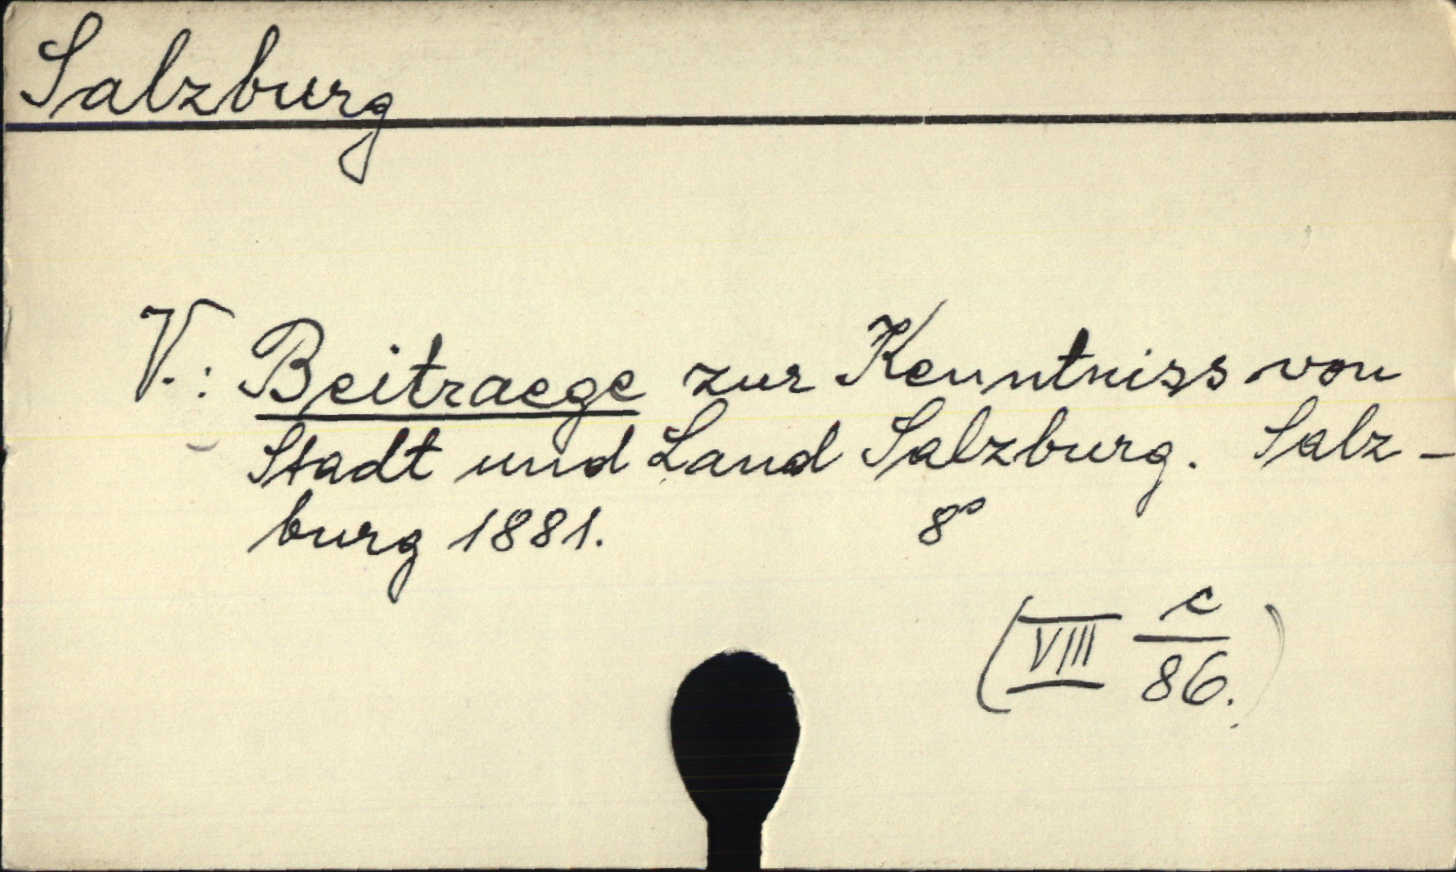 Salzburg
V.: Beitraege zur Kenntniss von
Stadt und Land Salzburg. Salz-
burg 1881. 8°
(VIII c/86.)